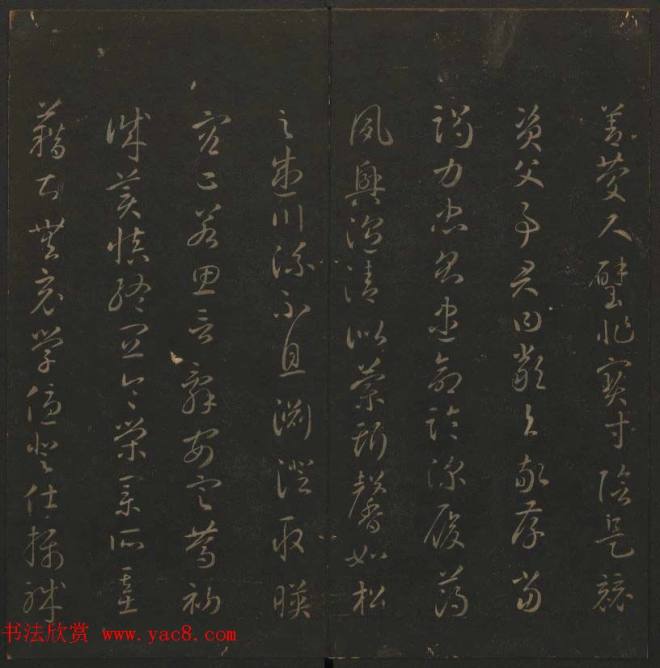 善慶尺璧非寶寸陰是競
資父事君曰嚴與敬孝當
竭力忠則盡命臨深履薄
夙興溫清似蘭斯馨如松
之盛川流不息淵澄取暎
容止若思言辭安定篤初
誠美慎終宜令榮業所基
藉甚無竟學優登仕攝職
书法欣赏 www.yac8.com